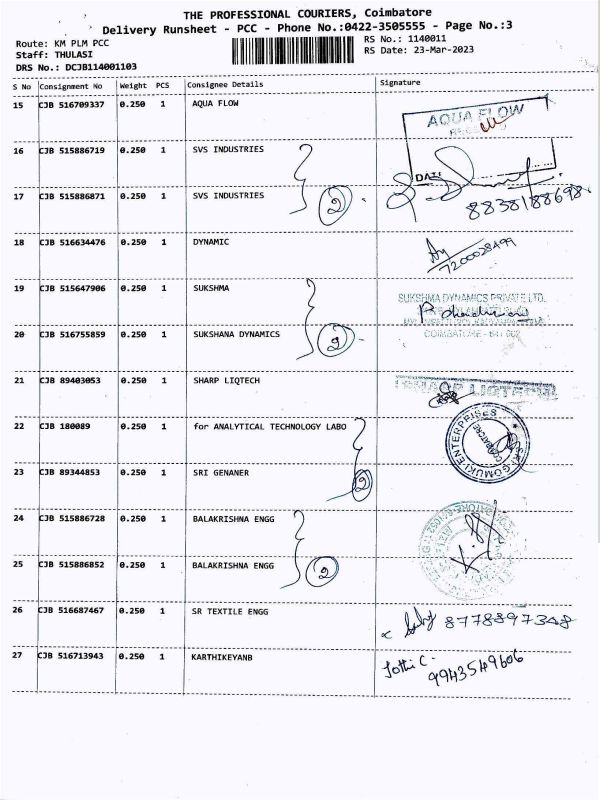 THE PROFESSIONAL COURIERS, Coimbatore
Delivery Runsheet - PCC - Phone No.:0422-3505555 - Page No.:3
Route: KM PLM PCC
RS No.: 1140011
Staff: THULASI
RS Date: 23-Mar-2023
DRS No.: DCJB114001103
S No Consignment No Weight PCS Consignee Details Signature
15 CJB 516709337 0.250 1 AQUA FLOW
AQUA FLOW
16 CJB 515886719 0.250 1 SVS INDUSTRIES
DATE
17 CJB 515886871 0.250 1 SVS INDUSTRIES
2
8838188698
18 CJB 516634476 0.250 1 DYNAMIC
7200028499
19 CJB 515647906 0.250 1 SUKSHMA
SUKSHMA DYNAMICS PRIVATE LTD.
20 CJB 516755859 0.250 1 SUKSHANA DYNAMICS
2
COIMBATORE - 641 062
21 CJB 89403053 0.250 1 SHARP LIQTECH
SHARP LIQTECH
22 CJB 180089 0.250 1 for ANALYTICAL TECHNOLOGY LABO
SRI GOMUKI ENTERPRISES
COIMBATORE
23 CJB 89344853 0.250 1 SRI GENANER
2
24 CJB 515886728 0.250 1 BALAKRISHNA ENGG
25 CJB 515886852 0.250 1 BALAKRISHNA ENGG
2
26 CJB 516687467 0.250 1 SR TEXTILE ENGG
8778897348
27 CJB 516713943 0.250 1 KARTHIKEYANB
Jothi C.
9943549606